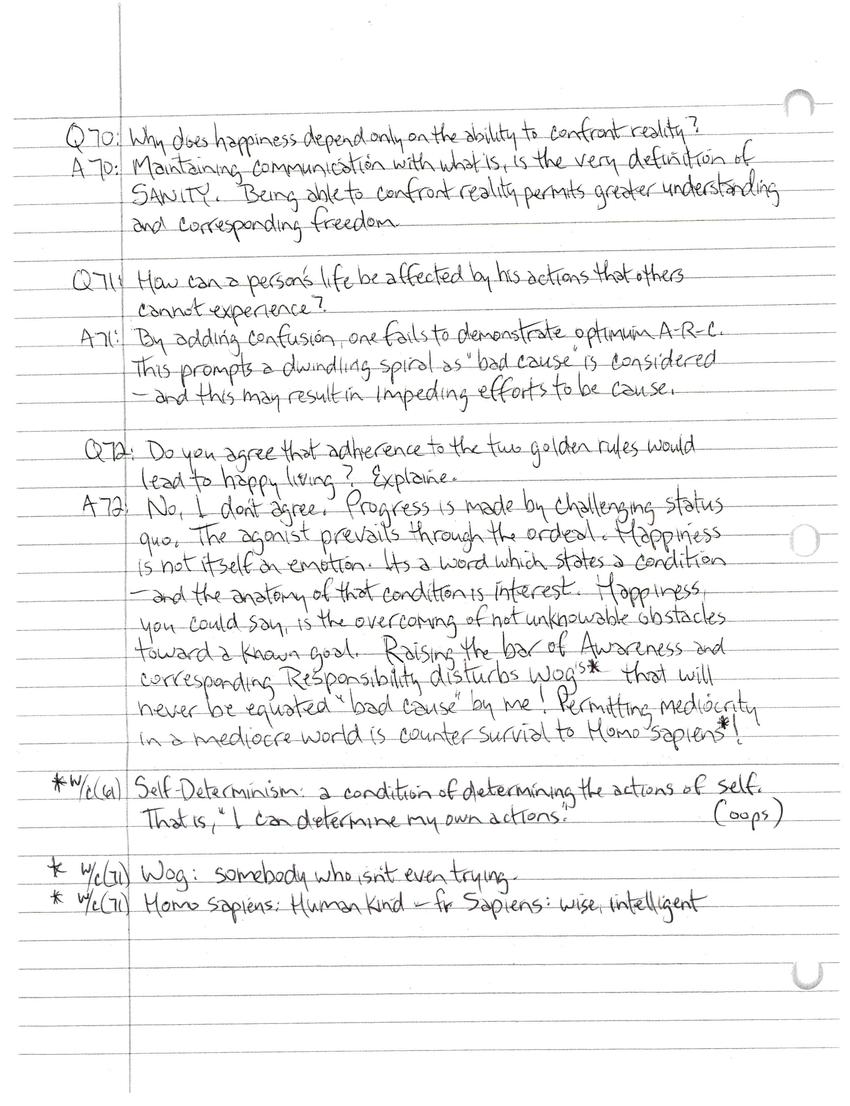 Q70: Why does happiness depend only on the ability to confront reality?
A70: Maintaining communication with what is, is the very definition of
SANITY. Being able to confront reality permits greater understanding
and corresponding freedom.
Q71: How can a person's life be affected by his actions that others
cannot experience?
A71: By adding confusion, one fails to demonstrate optimum A-R-C.
This prompts a dwindling spiral as "bad cause" is considered
- and this may result in impeding efforts to be cause.
Q72: Do you agree that adherence to the two golden rules would
lead to happy living? Explaine.
A72: No, I don't agree. Progress is made by challenging status
quo. The agonist prevails through the ordeal. Happiness
is not itself an emotion. Its a word which states a condition
- and the anatomy of that condition is interest. Happiness,
you could say, is the overcoming of not unknowable obstacles
toward a known goal. Raising the bar of Awareness and
corresponding Responsibility disturbs Wog's* that will
never be equated "bad cause" by me! Permitting mediocrity
in a mediocre world is counter survial to Homo sapiens*!
* w/c(61) Self-Determinism: a condition of determining the actions of self.
That is, "I can determine my own actions." (oops)
* w/c(71) Wog: somebody who isn't even trying.
* w/c(71) Homo sapiens: Human Kind - fr Sapiens: wise, intelligent